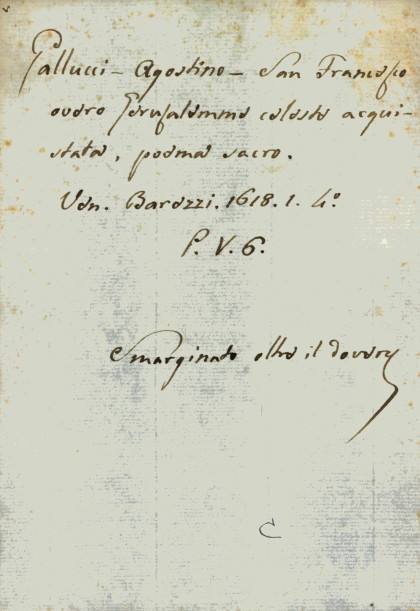 Gallucci - Agostino - San Francesco
overo Gerusalemme celeste acqui-
stata, poema sacro.
Ven. Barezzi. 1618. 1. 4º
P. V. 6.
Smarginato oltre il dovere
C